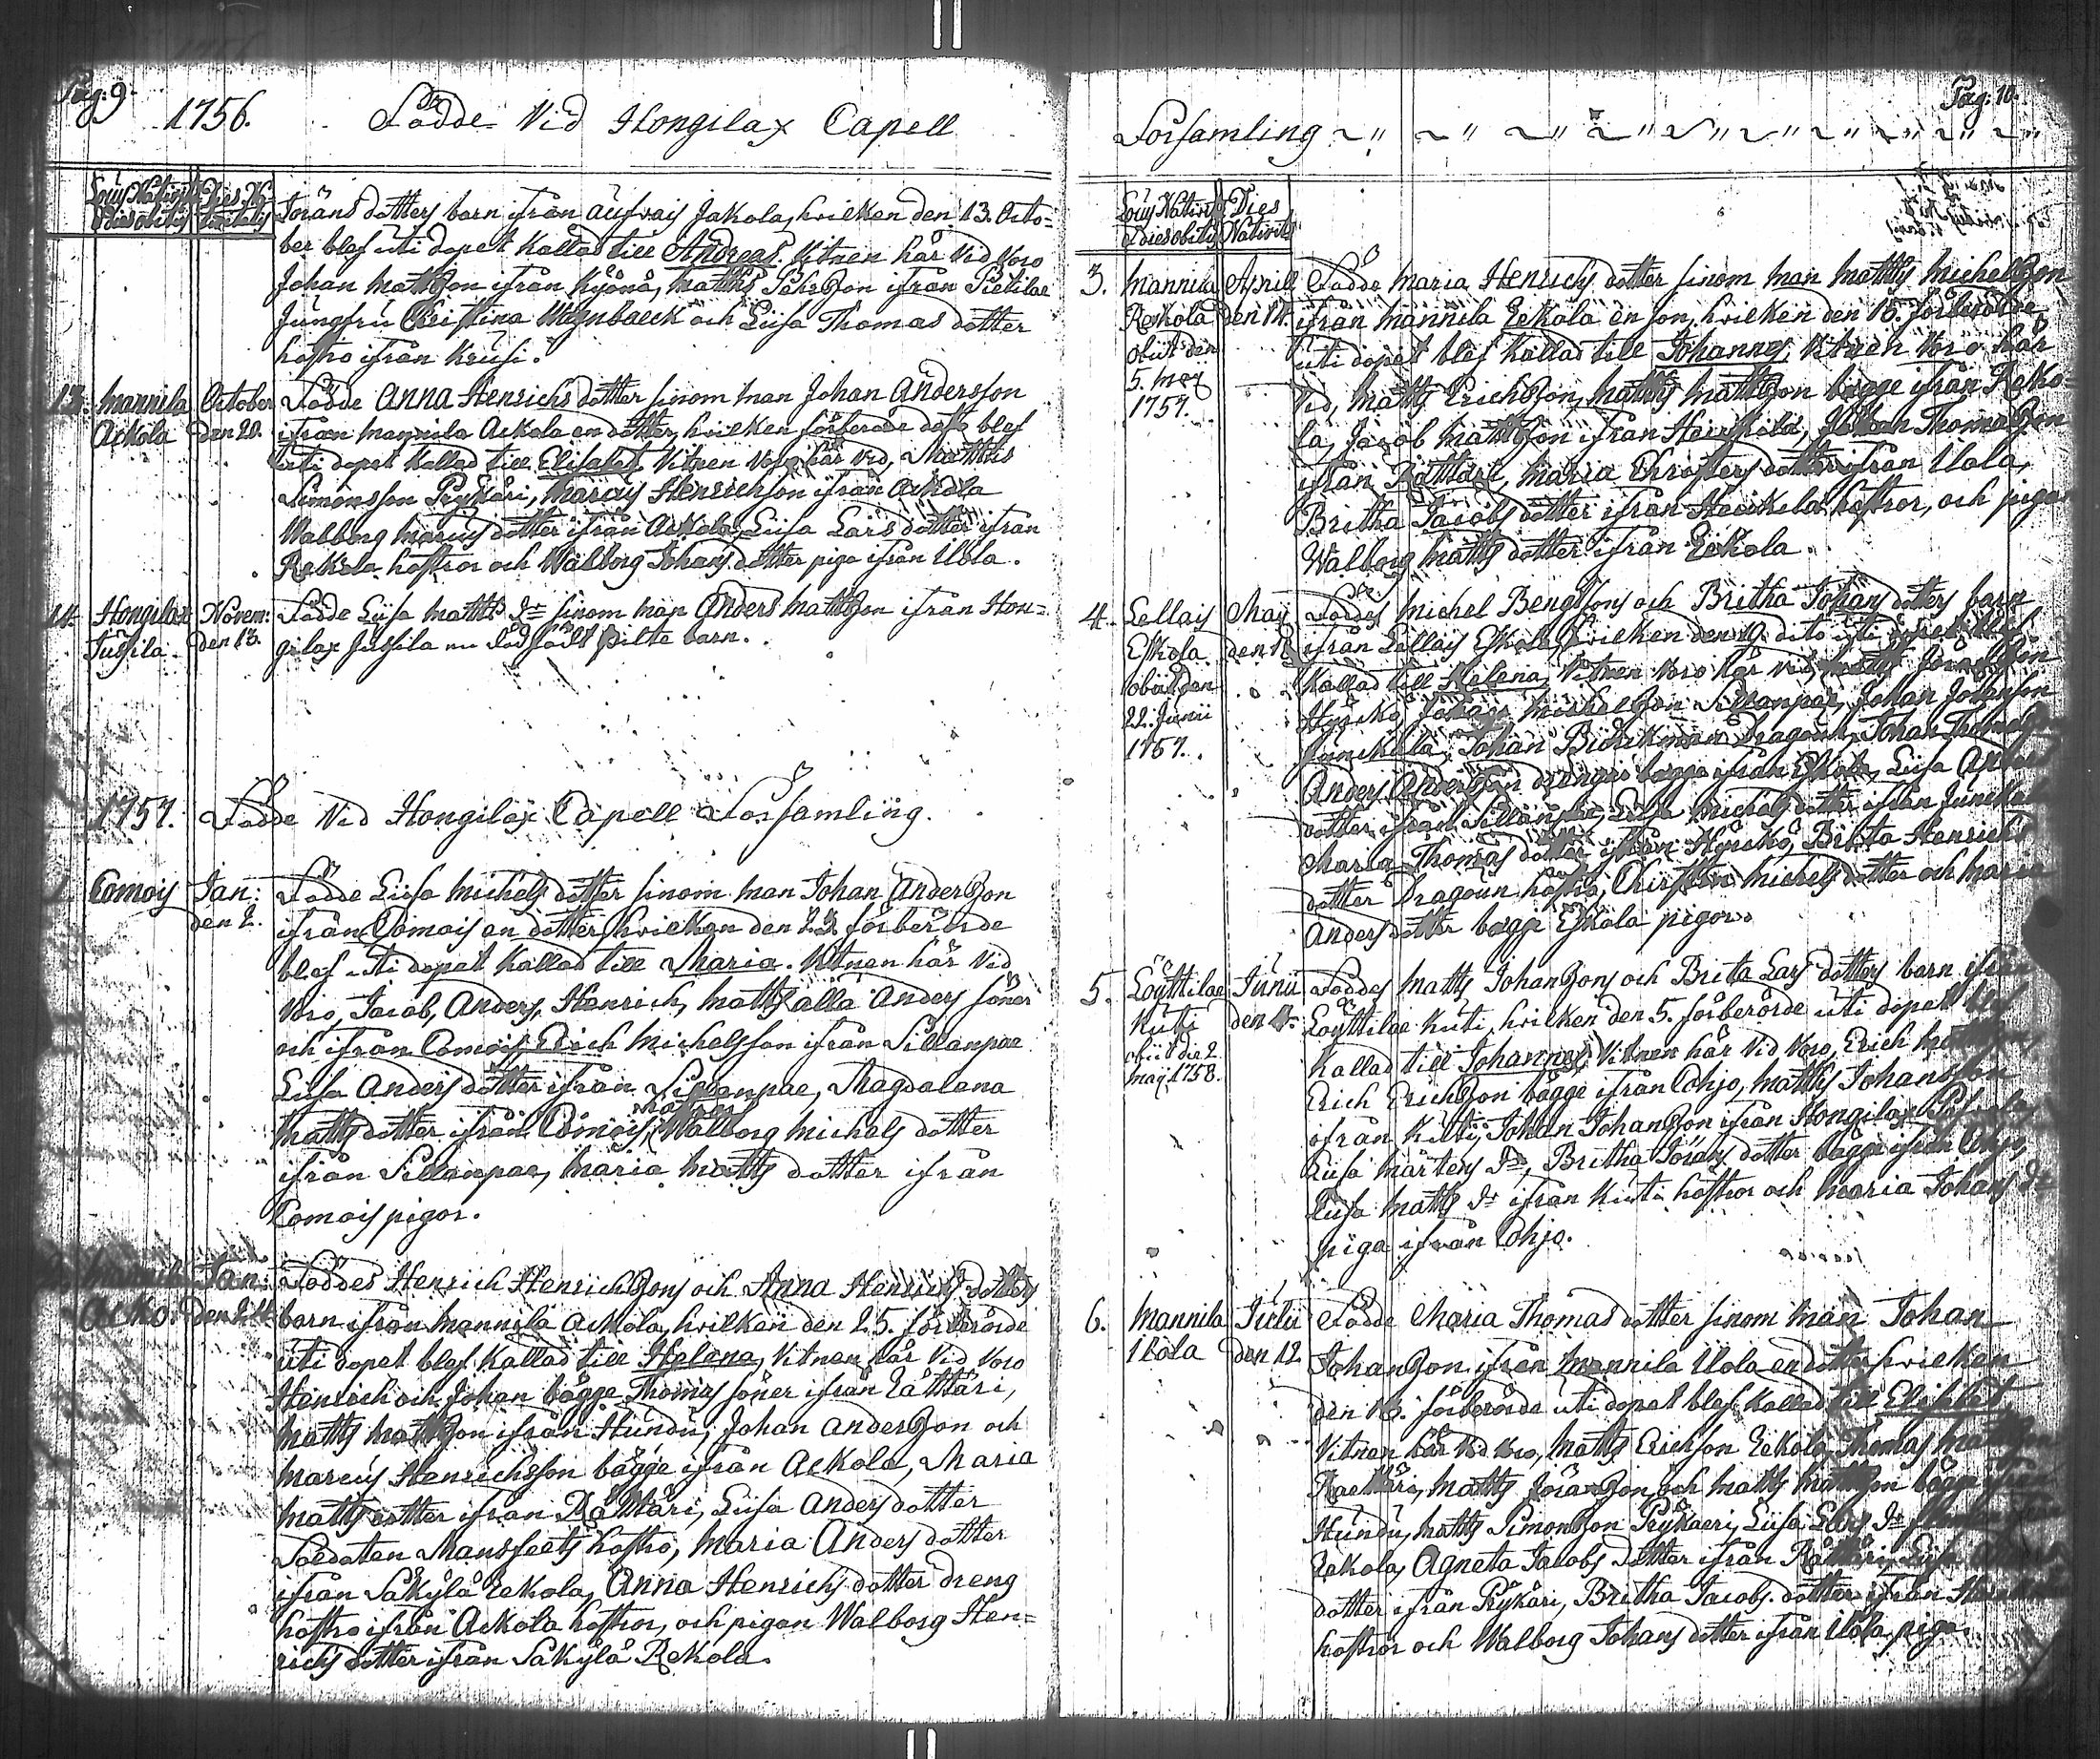 Pag: 9.
1756. Födde Vid Hongilax Capell
Locus Nativit: Dies Na-
& dies obitus tivitatis
Jöräns dotters barn ifrån Aufvais Jakola, hvilken den 13. Octo-
ber blef uti dopet Kallad till Andreas. Vitnen här Vid Voro
Johan Mattsson ifrån Kyönä, Matths Pehrsson ifrån Pietilae
Jungfru Christina Wegnbaeck och Liisa Thomas dotter
hostro ifrån Krusi.
13. Mannila October Födde Anna Henrichs dotter sinom man Johan Andersson
Ackola den 20. ifrån Mannila Ackola en dotter, hvilken förberörde dato blef
uti dopet Kallad till Elisabet, Vitnen Voro här Vid, Matths
Simonsson Prykäri, Marcus Henrichson ifrån Ackola
Walborg Marcus dotter ifrån Ackola, Liisa Lars dotter ifrån
Rekola hostror och Walborg Johans dotter piga ifrån Ulola.
14. Hongilax Novem: Födde Liisa Matths Dr sinom man Anders Mattsson ifrån Hon-
Jussila den 13. gilax Jussila en dödfödt pilte barn.
1757. Födde Vid Hongilax Capell Församling.
1. Comois Jan: Födde Liisa Michels dotter sinom man Johan Andersson
den 2. ifrån Comois en dotter hvilken den 23. förberörde
blef uti dopet Kallad till Maria. Vitnen här Vid
Voro, Jacob, Anders, Henrich, Matths alla Anders söner
och ifrån Comois, Erich Michelsson ifrån Sillanpae
Liisa Anders dotter ifrån Sillanpae, Magdalena
Matths dotter ifrån Comois, Walborg Michels dotter
ifrån Sillanpae, Maria Matths dotter ifrån
Comois pigor.
Jan: Föddes Henrich Henrichsons och Anna Henrichs dotters
Acko: den 24. barn ifrån Mannila Ackola, hvilken den 25. förberörde
uti dopet blef Kallad till Helena, Vitnen här Vid Voro
Henrich och Johan bägge Thomas söner ifrån Rättäri,
Matths Mattsson ifrån Hundu, Johan Andersson och
Marcus Henrichsson bägge ifrån Ackola, Maria
Matths dotter ifrån Rättäri, Liisa Anders dotter
Soldaten Mansfeets hostro, Maria Anders dotter
ifrån Säkylä Eekola, Anna Henrichs dotter dreng
hostro ifrån Ackola hostror, och pigan Walborg Hen-
richs dotter ifrån Säkylä Rekola.
Pag: 10.
Församling
Locus Nativit: Dies
& dies obitus Nativit:
3. Mannila April Födde Maria Henrichs dotter sinom man Matths Michelsson
Rekola den 14. ifrån Mannila Eekola en son, hvilken den 15. förberörde
obiit den uti dopet blef Kallad till Johannes, Vitnen Voro här
5. Maij Vid, Matths Erichsson, Matths Mattsson bägge ifrån Reko-
1757. la, Jacob Mattsson ifrån Heickilä, Johan Thomasson
ifrån Rättäri, Maria Christers dotter ifrån Ulola,
Britha Jacobs dotter ifrån Heickilä hostror, och pigan
Walborg Matths dotter ifrån Eekola.
4. Lellais Maij Föddes Michel Bengtsons och Britha Johans dotters barn
Eskola den 18 ifrån Lellais Eskola, hvilken den 19. dito uti dopet blef
obiit den Kallad till Helena, Vitnen Voro här Vid, Matths Jöransson
22. Junii Hyrckö, Johan Michelsson Sillanpae, Johan Johansson
1757. Junckala, Johan Dragoun, Johan
Anders Andersson drengar bägge ifrån Eskola, Liisa
dotter ifrån Sillanpae, Liisa Michels dotter ifrån Juncka
Maria Thomas dotter ifrån Hyrckö, Britta Henrichs
dotter Dragoun hostro, Christin Michels dotter och Maria
Anders dotter bägge Eskola pigor.
5. Löyttilae Junii Föddes Matths Johansons och Brita Lars dotters barn ifrån
Kuti den 4. Löyttilae Kuti, hvilken den 5. förberörde uti dopet blef
obiit die 2. Kallad till Johannes, Vitnen här Vid Voro, Erich
Maij 1758. Erich Erichsson bägge ifrån Cohjo, Matths Johansson
ifrån Kuti, Johan Johansson ifrån Hongilax
Liisa Mårtens Dr, Britha Jörans dotter bägge ifrån Cohjo,
Liisa Matths Dr ifrån Kuti hostror och Maria Johans Dr
piga ifrån Cohjo.
6. Mannila Julii Födde Maria Thomas dotter sinom man Johan
Ulola den 12 Johansson ifrån Mannila Ulola en dotter hvilken
den 13. förberörde uti dopet blef Kallad till Elisabet,
Vitnen här Vid Voro, Matths Erichson Eekola, Thomas
Raettäri, Matths Jöransson och Matths Mattsson bägge ifrån
Hundu, Matths Simonsson Pryckaeri, Liisa Lars Dr
Eekola, Agneta Jacobs dotter ifrån Rättäri, Liisa
dotter ifrån Pryckäri, Britha Jacobs dotter ifrån
hostror och Walborg Johans dotter ifrån Ulola piga.